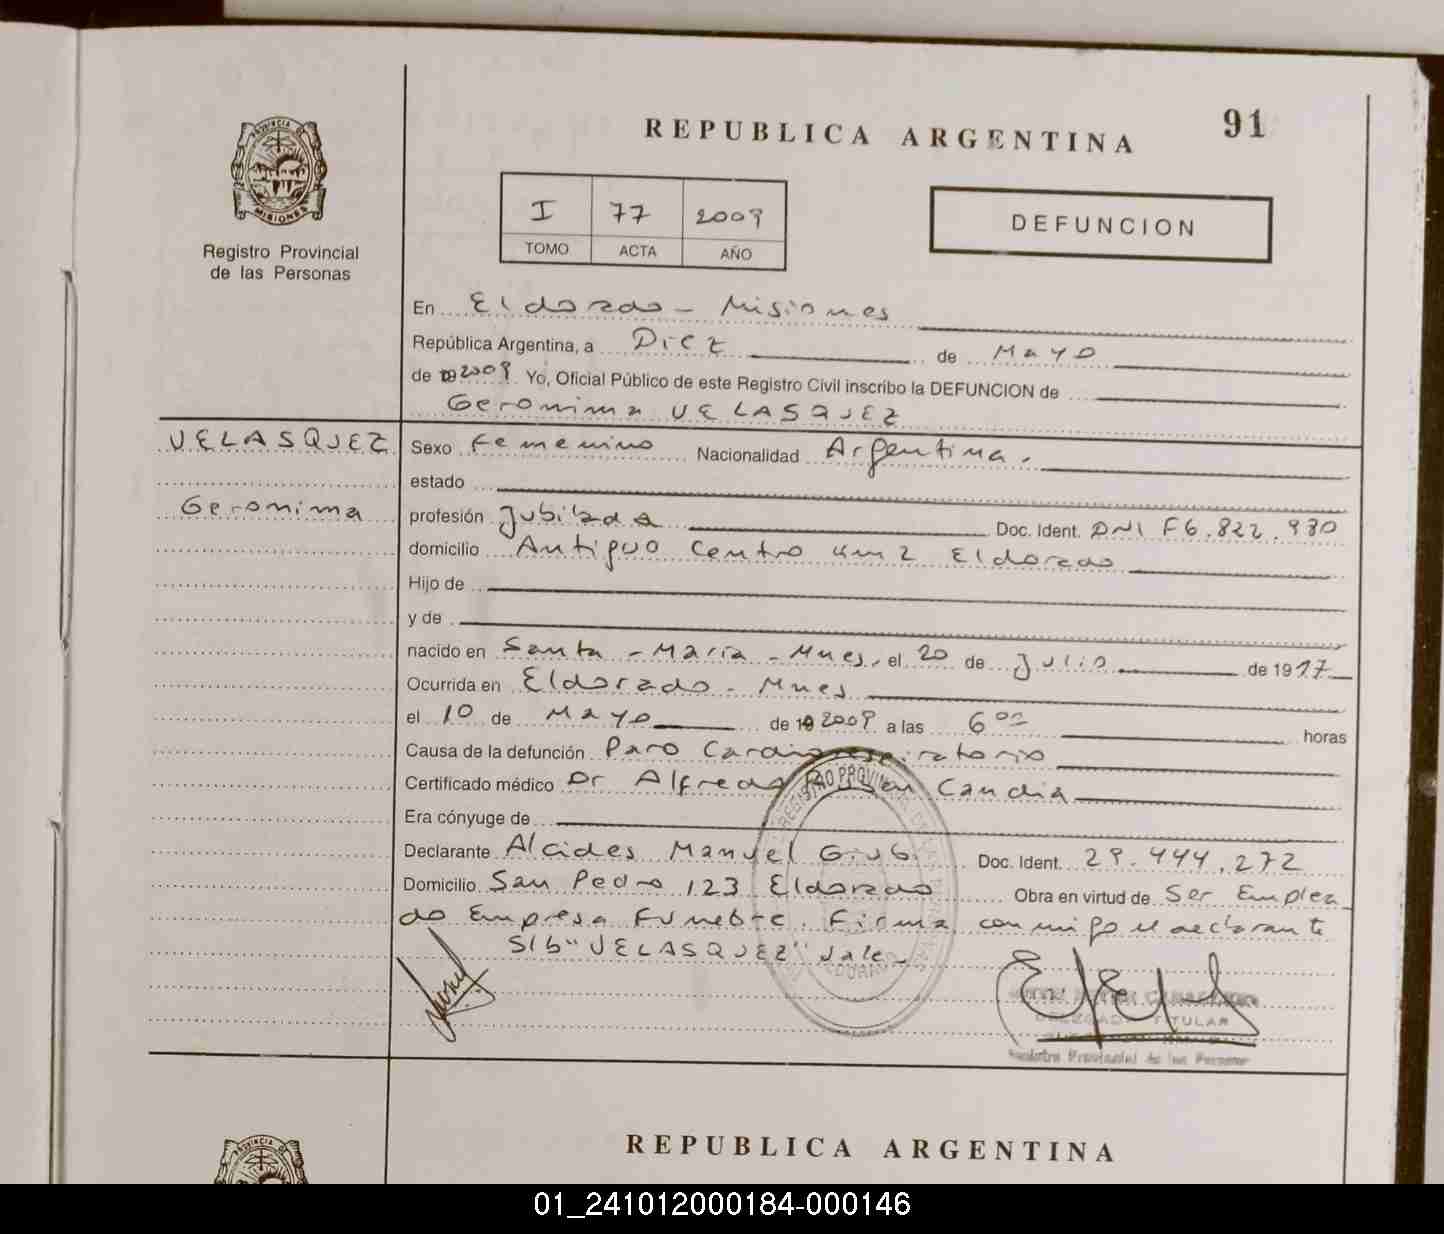 REPUBLICA ARGENTINA
91
PROVINCIA DE
MISIONES
Registro Provincial
de las Personas
I 77 2009
TOMO ACTA AÑO
DEFUNCION
En Eldorado - Misiones
República Argentina, a Diez de Mayo
de 2009 Yo, Oficial Público de este Registro Civil inscribo la DEFUNCION de
Geronima VELASQUEZ
VELASQUEZ
Geronima
Sexo Femenino Nacionalidad Argentina.
estado
profesión Jubilada Doc. Ident. DNI F6.822.980
domicilio Antiguo Centro km 2 Eldorado
Hijo de
y de
nacido en Santa - Maria - Mnes, el 20 de Julio de 1917
Ocurrida en Eldorado - Mnes
el 10 de Mayo de 2009 a las 6 00 horas
Causa de la defunción Paro Cardiorespiratorio
Certificado médico Dr Alfredo Candia
Era cónyuge de
Declarante Alcides Manuel Doc. Ident. 29.444.272
Domicilio San Pedro 123 Eldorado Obra en virtud de Ser Emplea
do Empresa Funebre. Firma conmigo el declarante
S/b "VELASQUEZ" Vale -
REGISTRO PROVINCIAL
TITULAR
Registro Provincial de las Personas
REPUBLICA ARGENTINA
PROVINCIA DE
01_241012000184-000146